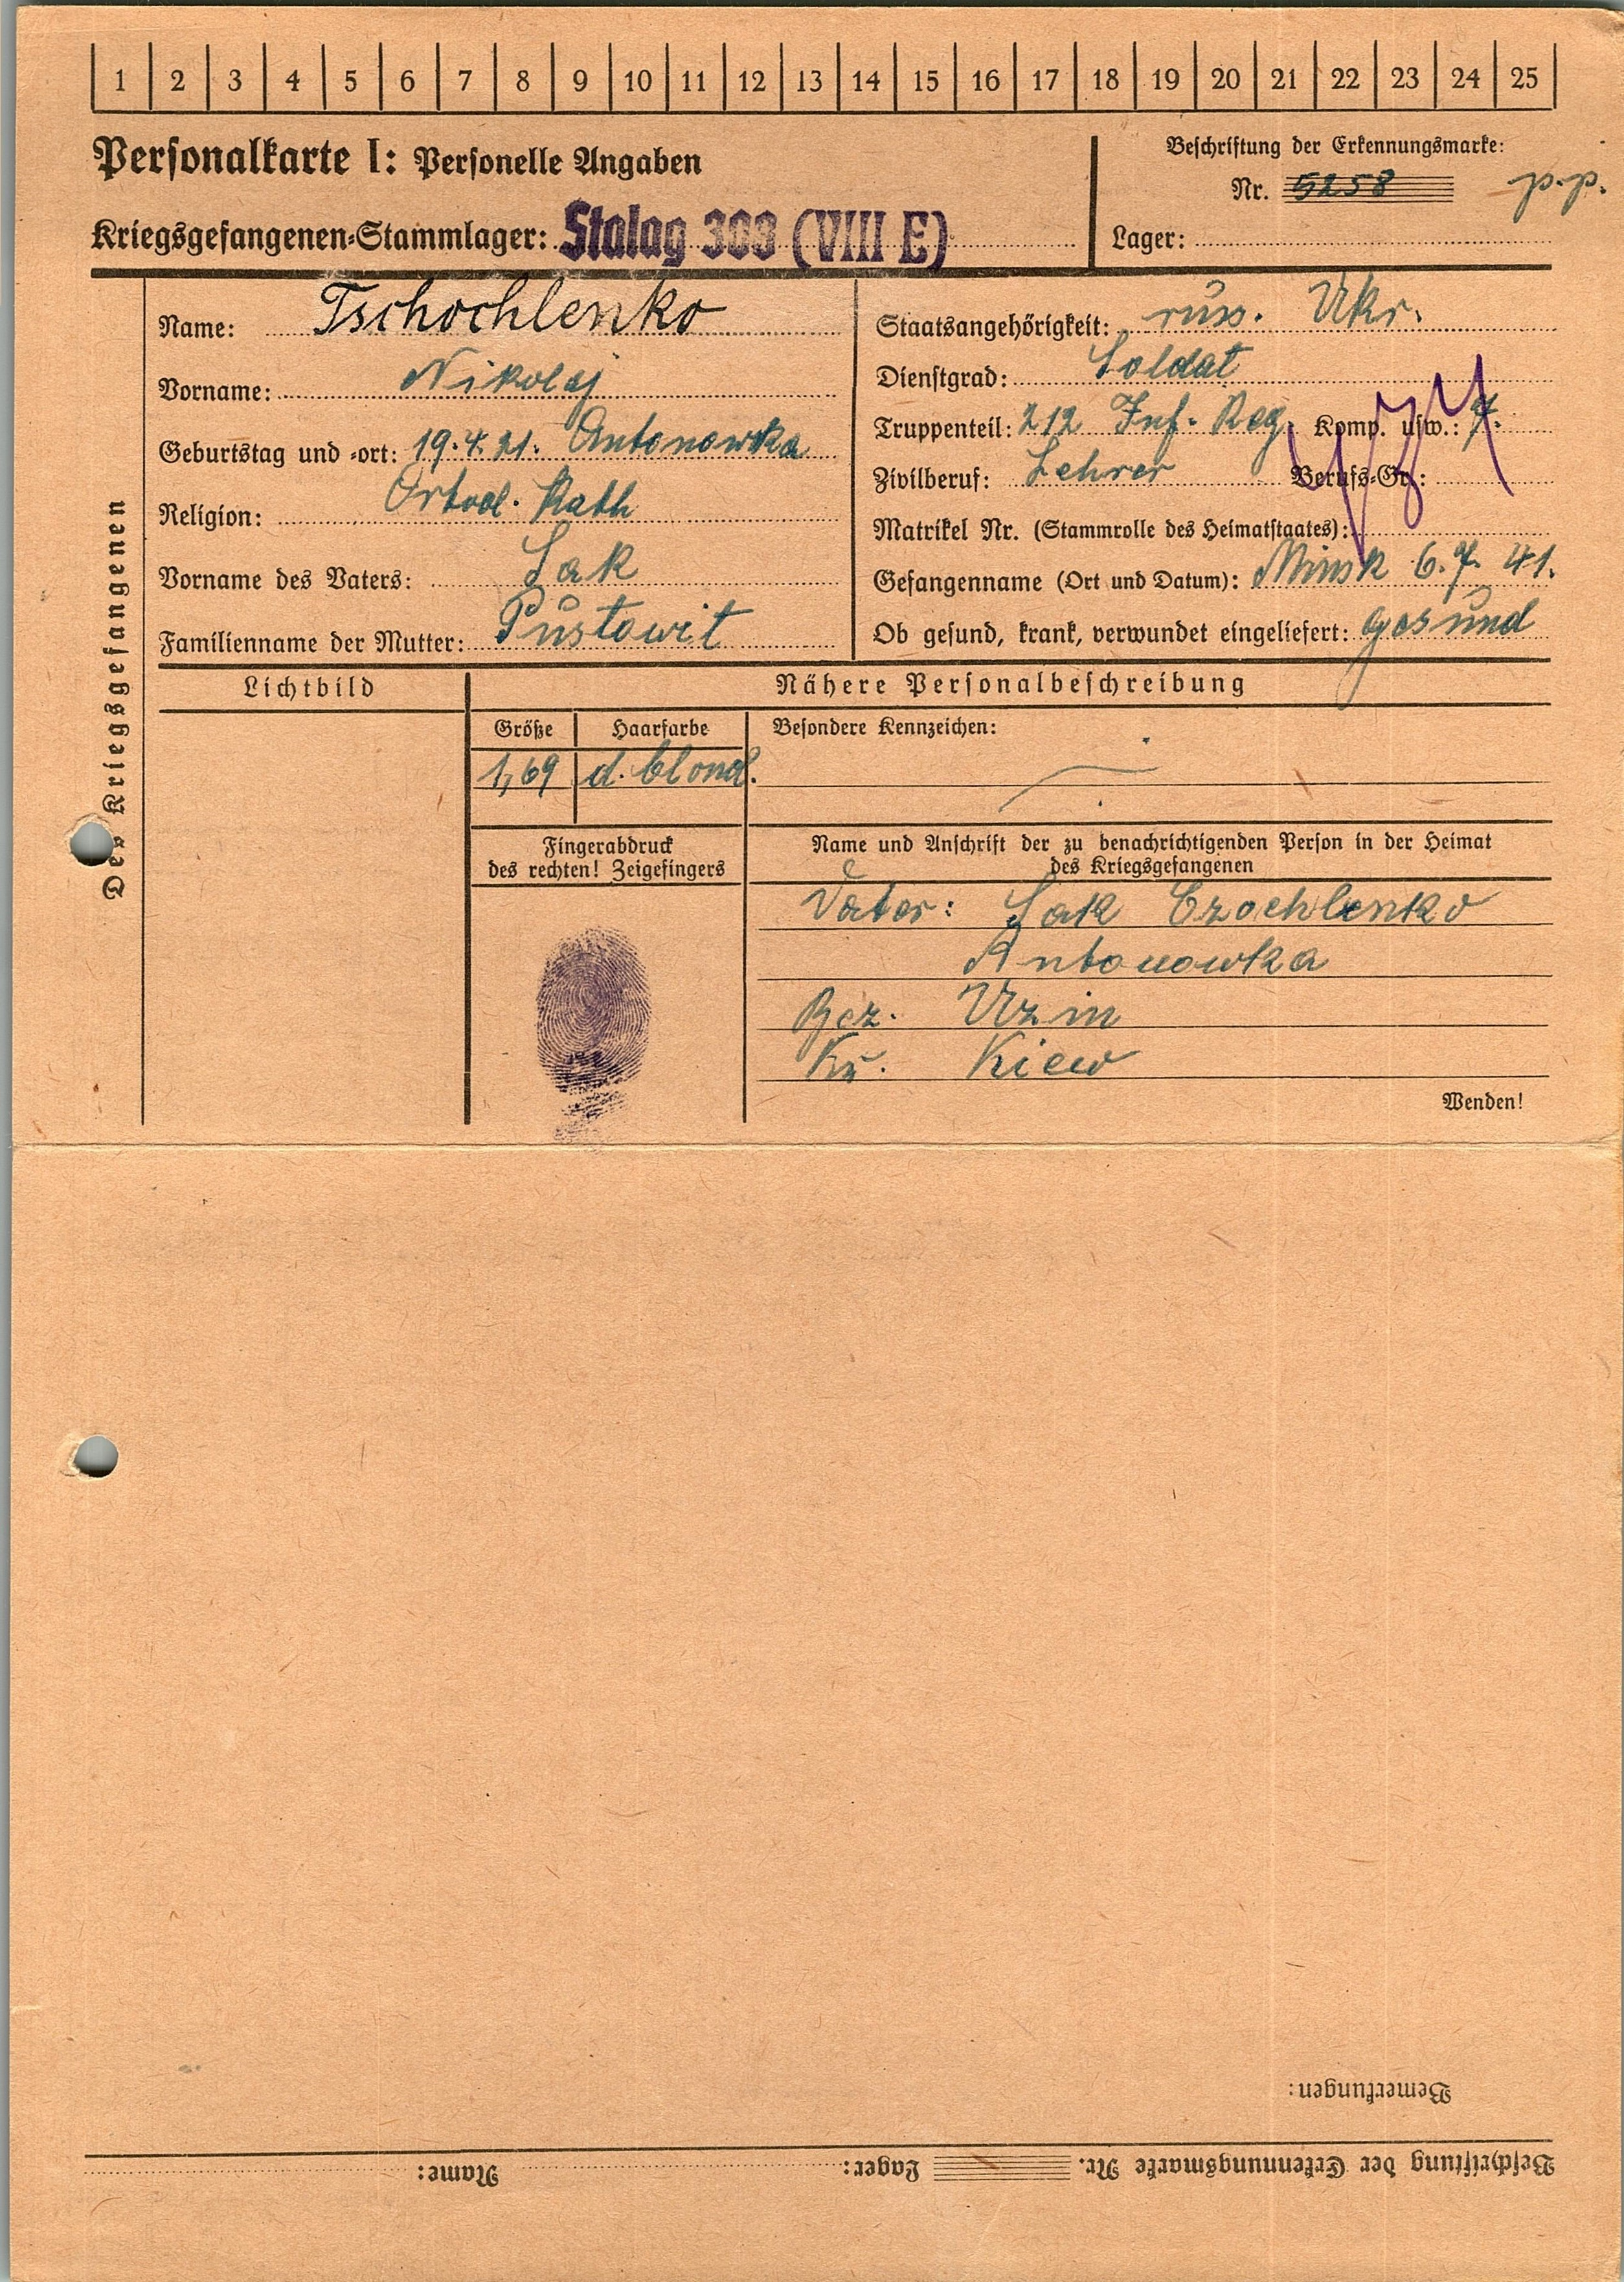 1 2 3 4 5 6 7 8 9 10 11 12 13 14 15 16 17 18 19 20 21 22 23 24 25
Personalkarte I: Personelle Angaben
Kriegsgefangenen-Stammlager: Stalag 308 (VIII E)
Beschriftung der Erkennungsmarke:
Nr. 5258 p.p.
Lager:
Des Kriegsgefangenen
Name: Tschochlenko
Vorname: Nikolaj
Geburtstag und -ort: 19.4.21. Antonowka
Religion: Ortod. Kath
Vorname des Vaters: Sak
Familienname der Mutter: Pustowit
Staatsangehörigkeit: russ. Ukr.
Dienstgrad: Soldat
Truppenteil: 212 Inf. Reg. Komp. usw.: 7.
Zivilberuf: Lehrer Berufs-Gr.:
Matrikel Nr. (Stammrolle des Heimatstaates):
Gefangenname (Ort und Datum): Minsk 6.7. 41.
Ob gesund, krank, verwundet eingeliefert: gesund
Lichtbild
Nähere Personalbeschreibung
Größe Haarfarbe Besondere Kennzeichen:
1,69 d. blond. —
Fingerabdruck
des rechten! Zeigefingers
Name und Anschrift der zu benachrichtigenden Person in der Heimat
des Kriegsgefangenen
Vater: Sak Czochlenko
Antonowka
Bez. Uzin
Kr. Kiew
Wenden!
Bemerkungen:
Beschriftung der Erkennungsmarke Nr. Lager: Name: